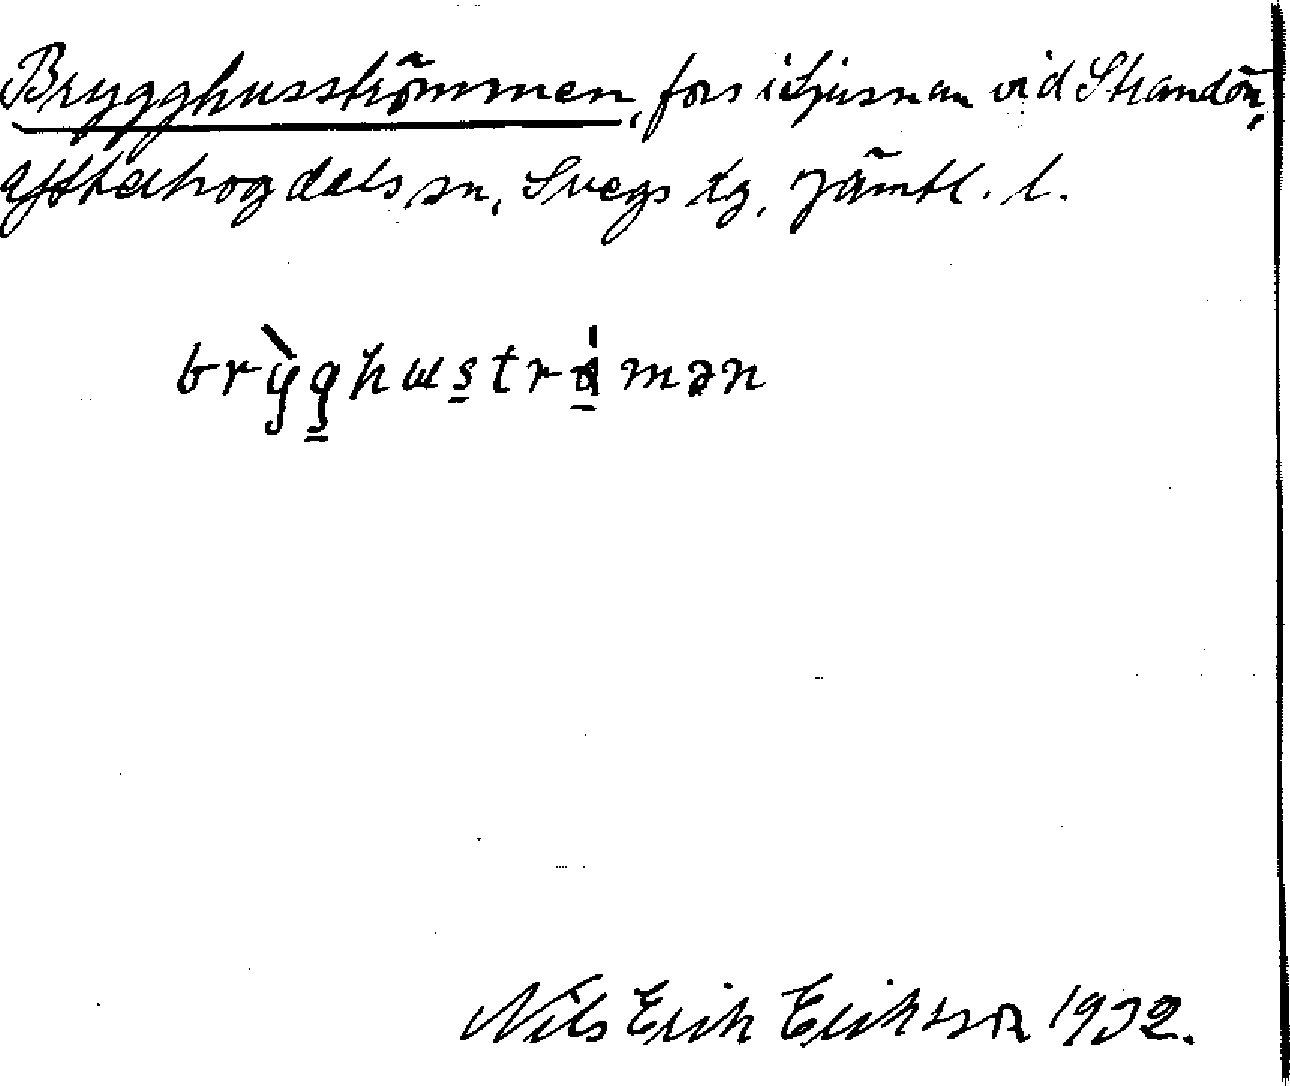 Brygghusströmmen, fors i Ljusnan vid Strandön,
Ytterhogdals sn, Svegs tg. Jämtl. l.
brỳghusströmən
Nils Erik Eriksson 1932.